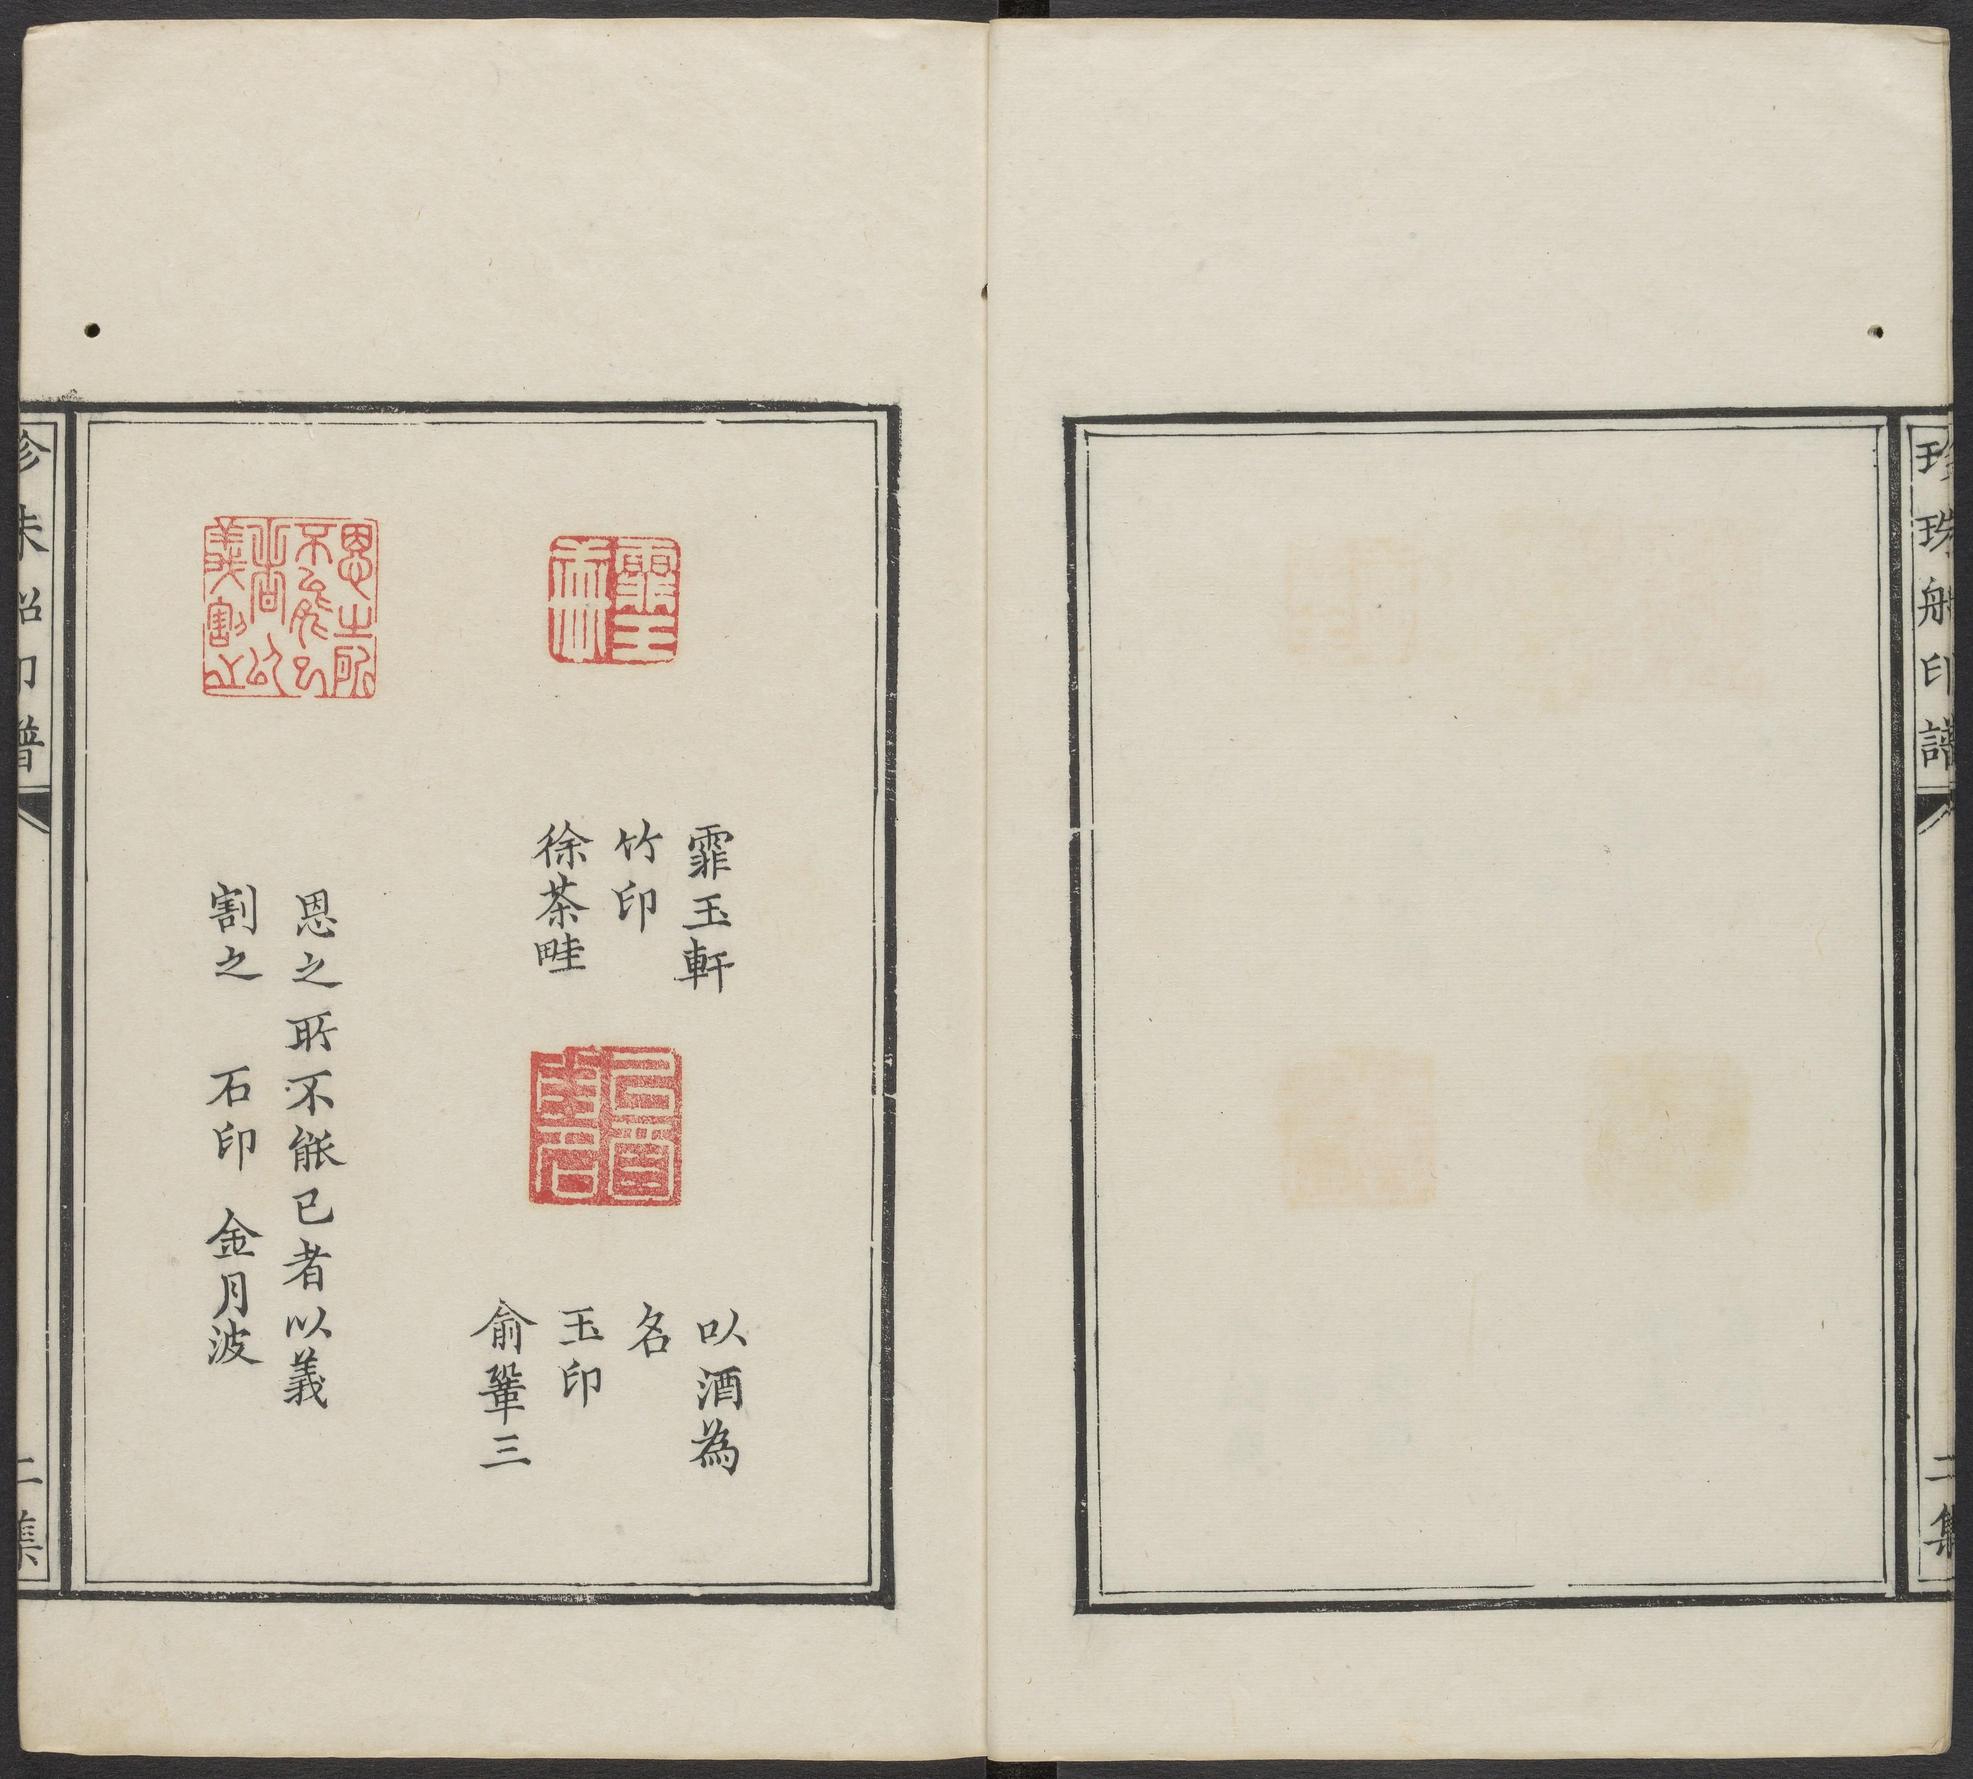 珍珠船印譜
二集
霏玉軒
竹印
徐茶畦
以酒為
名
玉印
俞鞏三
恩之所不能已者以義
割之 石印 金月波
珍珠船印譜
二集